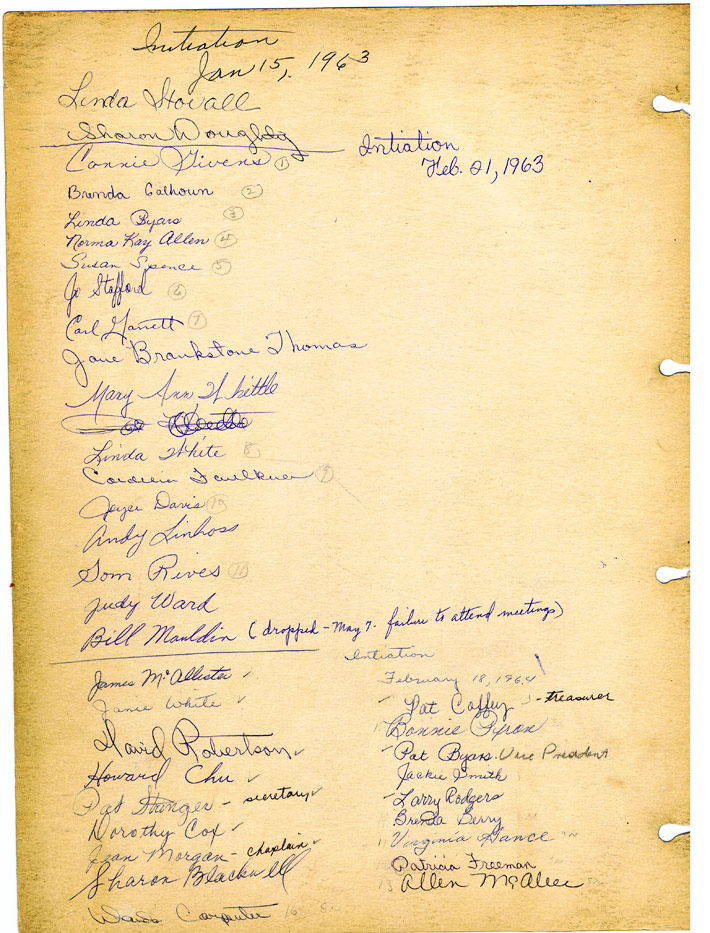 Initiation
Jan 15, 1963
Linda Stovall
Sharon Doughty
Initiation
Feb. 21, 1963
Connie Givens 1
Brenda Calhoun 2
Linda Byars 3
Norma Kay Allen 4
Susan Spence 5
Jo Stafford 6
Carl Garrett 7
Jane Brankstone Thomas
Mary Ann Whittle
Linda White 8
Faulkner 9
Joyce Davis 10
Andy Linhoss
Tom Rives 11
Judy Ward
Bill Mauldin (dropped - May 7. failure to attend meetings)
Initiation
February 18, 1964
James McAllister
Janie White
David Robertson
Howard Chu
Pat Stanger - secretary
Dorothy Cox
Jean Morgan - chaplain
Sharon Blackwell
Carpenter 16
Pat Coffey - treasurer
Bonnie Pyron
Pat Byars Vice President
Jackie Smith
Larry Rodgers
Brenda Berry
Virginia Hance
Patricia Freeman
15 Allen McAlee